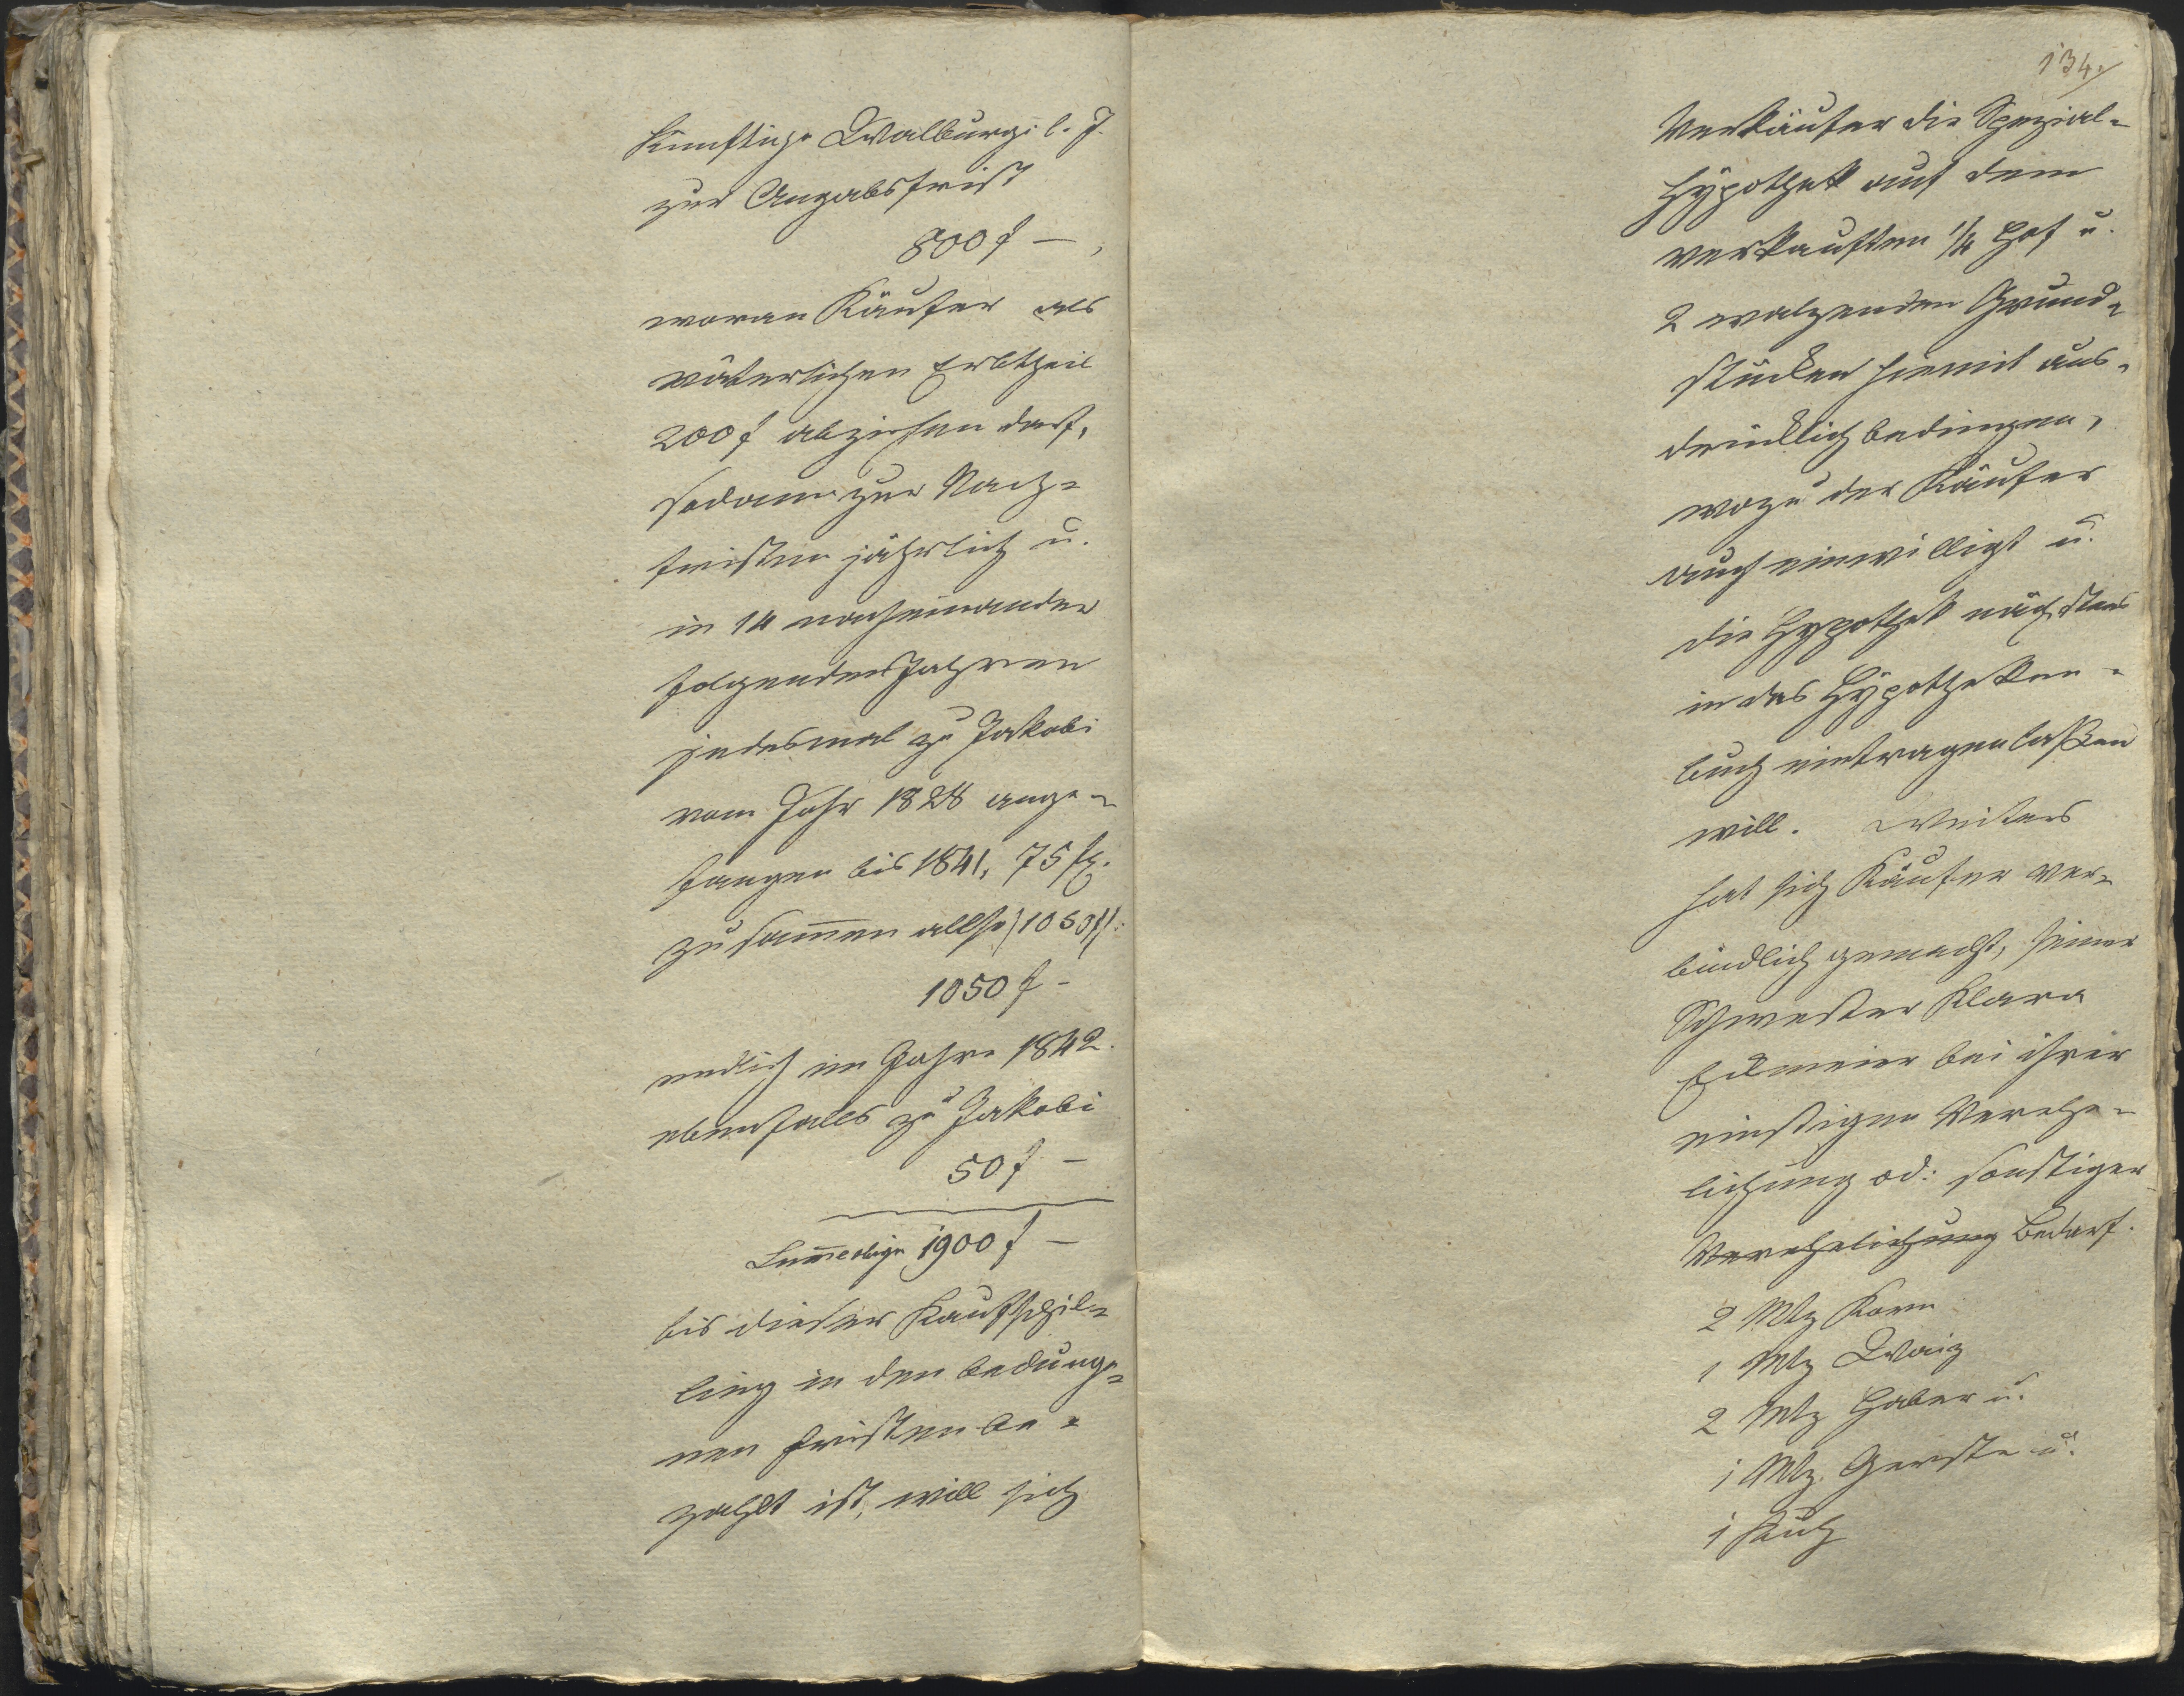 künftige Walburgi l. J.
zur Angabsfrist
800 f —,
woran Käufer als
väterlichen Erbtheil
200 f abziehen darf,
sodann zur Nach-
fristen jährlich u.
in 14 nacheinander
folgenden Jahren
jedesmal zu Jakobi
vom Jahr 1828 ange-
fangen bis 1841, 75 f.
zusam̄en allso 1050 f:
1050 f –
endlich im Jahre 1842.
ebenfalls zu Jakobi
50 f –
1900 f –
bis dieser Kaufschil-
ling in den bedunge-
nen Fristen be-
zahlt ist, will sich
134.
Verkäufer die Spezial-
Hÿpothek auf dem
verkauften 1/4 Hof u.
2 walzenden Grund-
stücken hiemit aus-
drücklich bedingen,
wozu der Käufer
auch einwilligt u.
die Hÿpothek nächstens
in das Hÿpotheken-
buch eintragen laßen
will. Weiters
hat sich Käufer ver-
bindlich gemacht, seiner
Schwester Klara
bei ihrer
einstigen Verehe-
lichung od: sonstiger
Verehelichung Bedarf.
2 Mtz Korn
1 Mtz Waiz
2 Mtz Haber u.
1 Mtz. Gerste u.
1